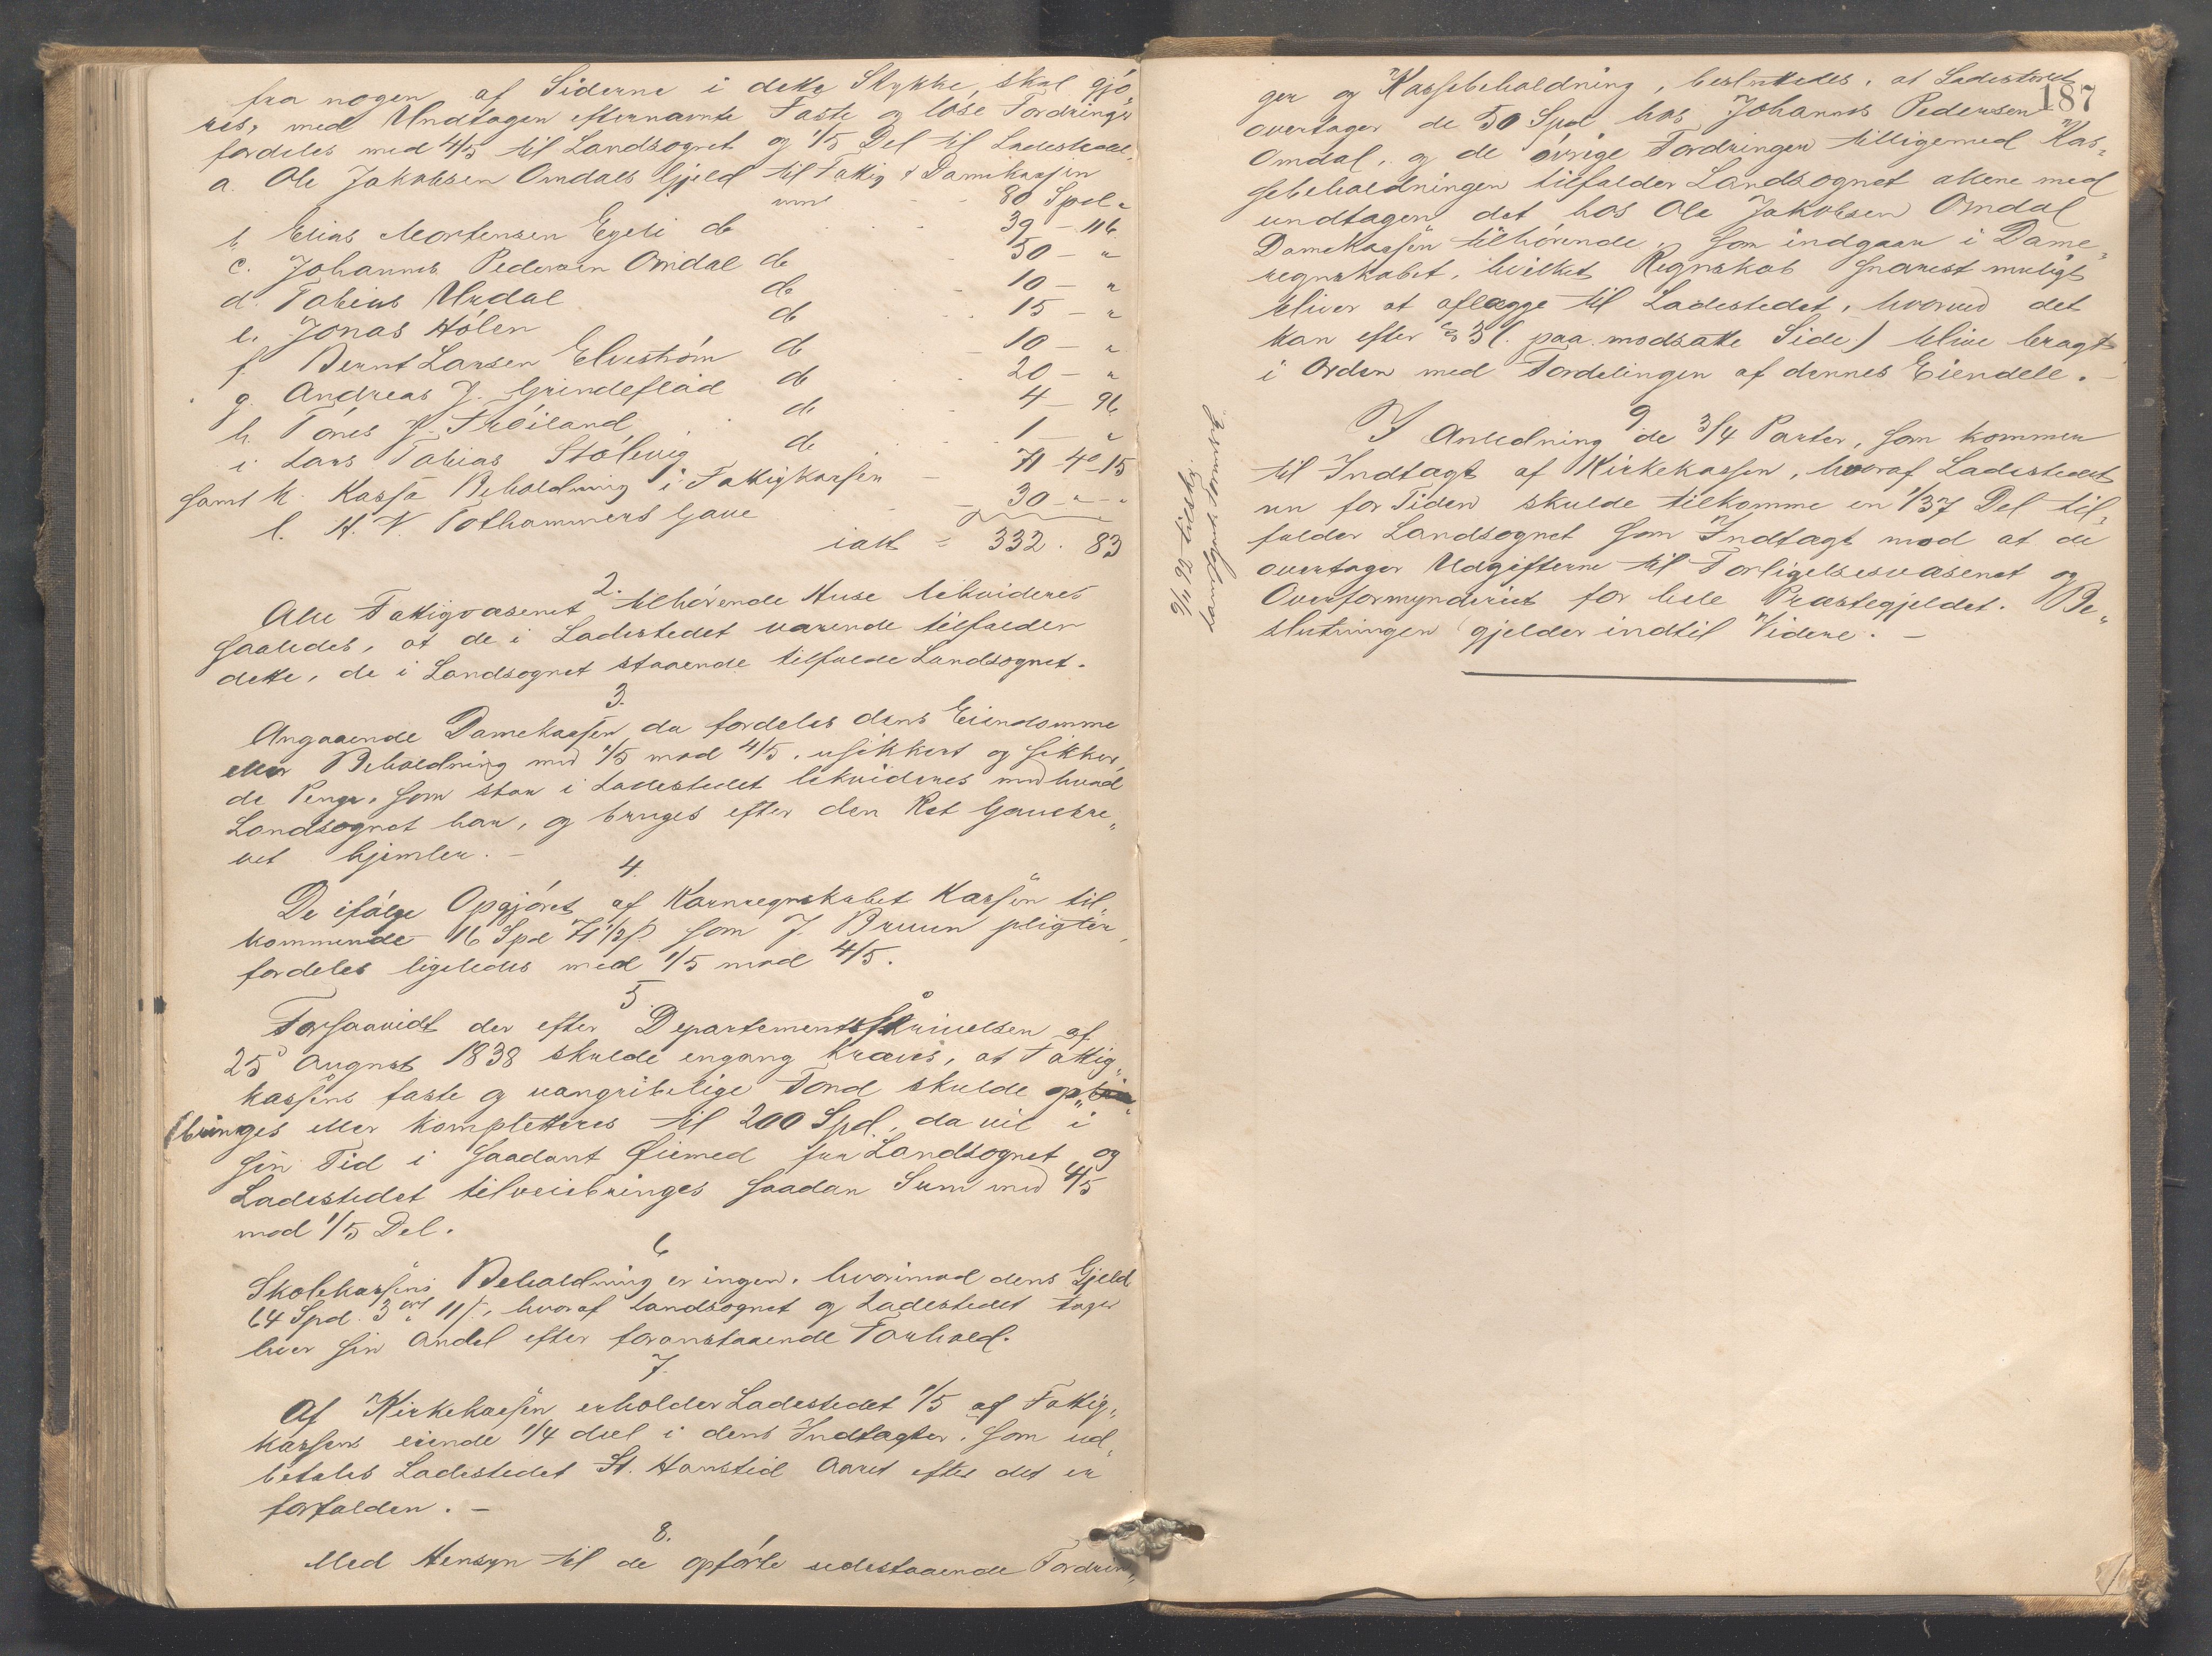 fra nogen af Siderne i dette Stykke, skal gjö„
res, med Undtagen efternævnte Faste og löse Fordringer
fordeles med 4/5 til Landsognet og 1/5 Del til Ladestedet.
a. Ole Jakobsen Omdals Gjeld til Fattig & Damekassen
80 Spd „
b Elias Mortensen Egeli do 39 – 116
c. Johannes Pedersen Omdal do 50 – „
d. Tobias Urdal do 10 – „
e. Jonas Hölen do 15 – „
f. Bernt Larsen Elveström do 10 – „
g. Andreas J. Grindeflad do 20 – „
h. Tönes J. Tröiland do 4 – 96
i Lars Tobias Stölevig do 1 – „
samt k. Kassa Beholdning i Fattigkassen 71 4 15
l. H. V. Pothammers Gave 30 „ – „
ialt = 332. 83
2.
Alle Fattigvæsenet tilhörende Huse likvideres
saaledes, at de i Ladestedet værende tilfalder
dette, de i Landsognet staaende tilfalde Landsognet.
3.
Angaaende Damekassen, da fordeles dens Eiendomme
eller Beholdning med 1/5 mod 4/5, usikkert og sikker,
de Penge, som staar i Ladestedet likvideres med hvad
Landsognet har, og bruges efter den Ret Gavebre„
vet hjemler. –
4.
De ifölge Opgjöret af Kornregnskabet Kassen til„
kommende 16 Spd 71 1/2 ß som J. Bruun pligter,
fordeles ligeledes med 1/5 mod 4/5.
5.
Forsaavidt der efter Departementsskrivelsen af
25 August 1838 skulde engang kræves, at Fattig„
kassens faste og uangribelige Fond skulde op„
bringes eller kompletteres til 200 Spd., da vil i
sin Tid i saadant Øiemed fra Landsognet og
Ladestedet tilveiebringes saadan Sum med 4/5
mod 1/5 Del.
6
Skolekassens Beholdning er ingen, hvorimod dens Gjeld
64 Spd. 3 ort 11 ß, hvoraf Landsognet og Ladestedet tager
hver sin Andel efter foranstaaende Forhold.
7.
Af Kirkekassen erholder Ladestedet 1/5 af Fattig„
kassens eiende 1/4 deel i dens Indtægter, som ud„
betales Ladestedet St. Hanstid Aaret efter det er
forfalden. –
8.
Med Hensyn til de opförte udestaaende Fordrin„
187
ger og Kassebeholdning, besluttedes, at Ladestedet
overtager de 50 Spd hos Johannes Pedersen
Omdal, og de övrige Fordringer tilligemed Kas„
sebeholdningen tilfalder Landsognet alene med
undtagen det hos Ole Jakobsen Omdal
Damekassen tilhörende, som indgaar i Dame„
regnskabet, hvilket Regnskab snarest muligt
bliver at aflægge til Ladestedet, hvorved det
kan efter § 3 (paa modsatte Side) blive bragt
i Orden med Fordelingen af dennes Eiendele. –
9
I Anledning de 3/4 Parter, som kommer
til Indtægt af Kirkekassen, hvoraf Ladestedet
nu for Tiden skulde tilkomme en 1/37 Del til„
falder Landsognet som Indtægt mod at de
overtager Udgifterne til Forligelsesvæsenet og
Overformynderiet for hele Præstegjeldet. Be„
slutningen gjelder indtil Videre. –